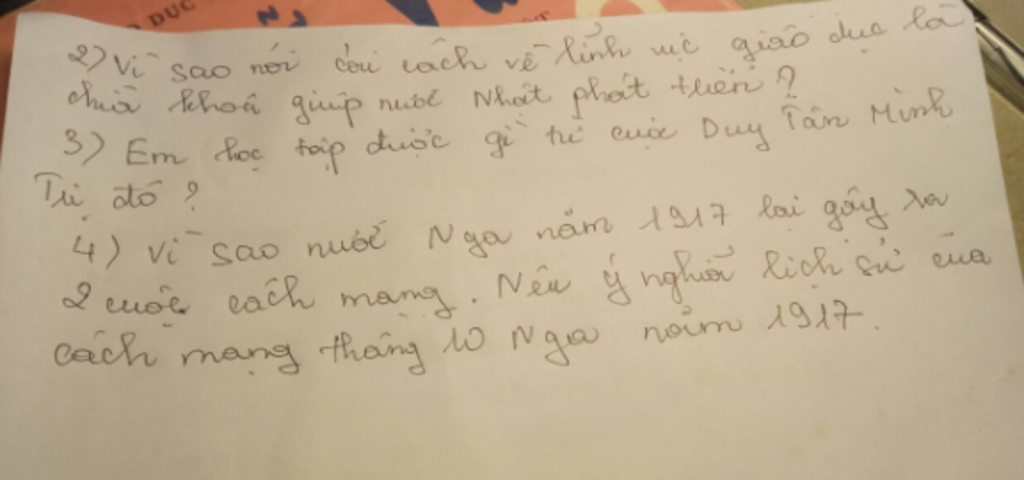 DUC
2) Vì sao nói cải cách về lĩnh vực giáo dục là
chìa khoá giúp nước Nhật phát triển ?
3) Em học tập được gì từ cuộc Duy Tân Minh
Trị đó ?
4) Vì sao nước Nga năm 1917 lại gây ra
2 cuộc cách mạng. Nêu ý nghĩa lịch sử của
cách mạng tháng 10 Nga năm 1917.